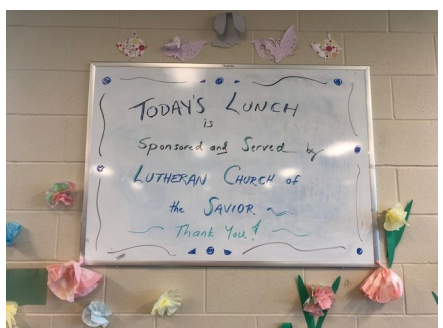 TODAY'S LUNCH
is
Sponsored and Served by
LUTHERAN CHURCH of
the SAVIOR
Thank You!